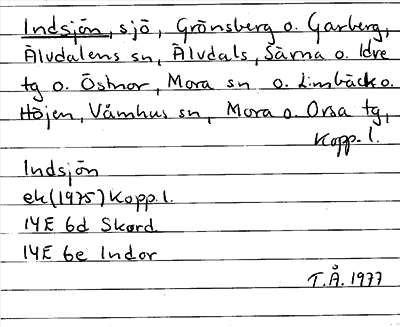 Indsjön, sjö, Grönsberg o. Garberg,
Älvdalens sn, Älvdals, Särna o. Idre
tg o. Östnor, Mora sn o. Limbäck o.
Höjen, Våmhus sn, Mora o. Orsa tg,
Kopp. l.
Indsjön
ek (1975) Kopp. l.
14E 6d Skord
14E 6e Indor
T.Å. 1977